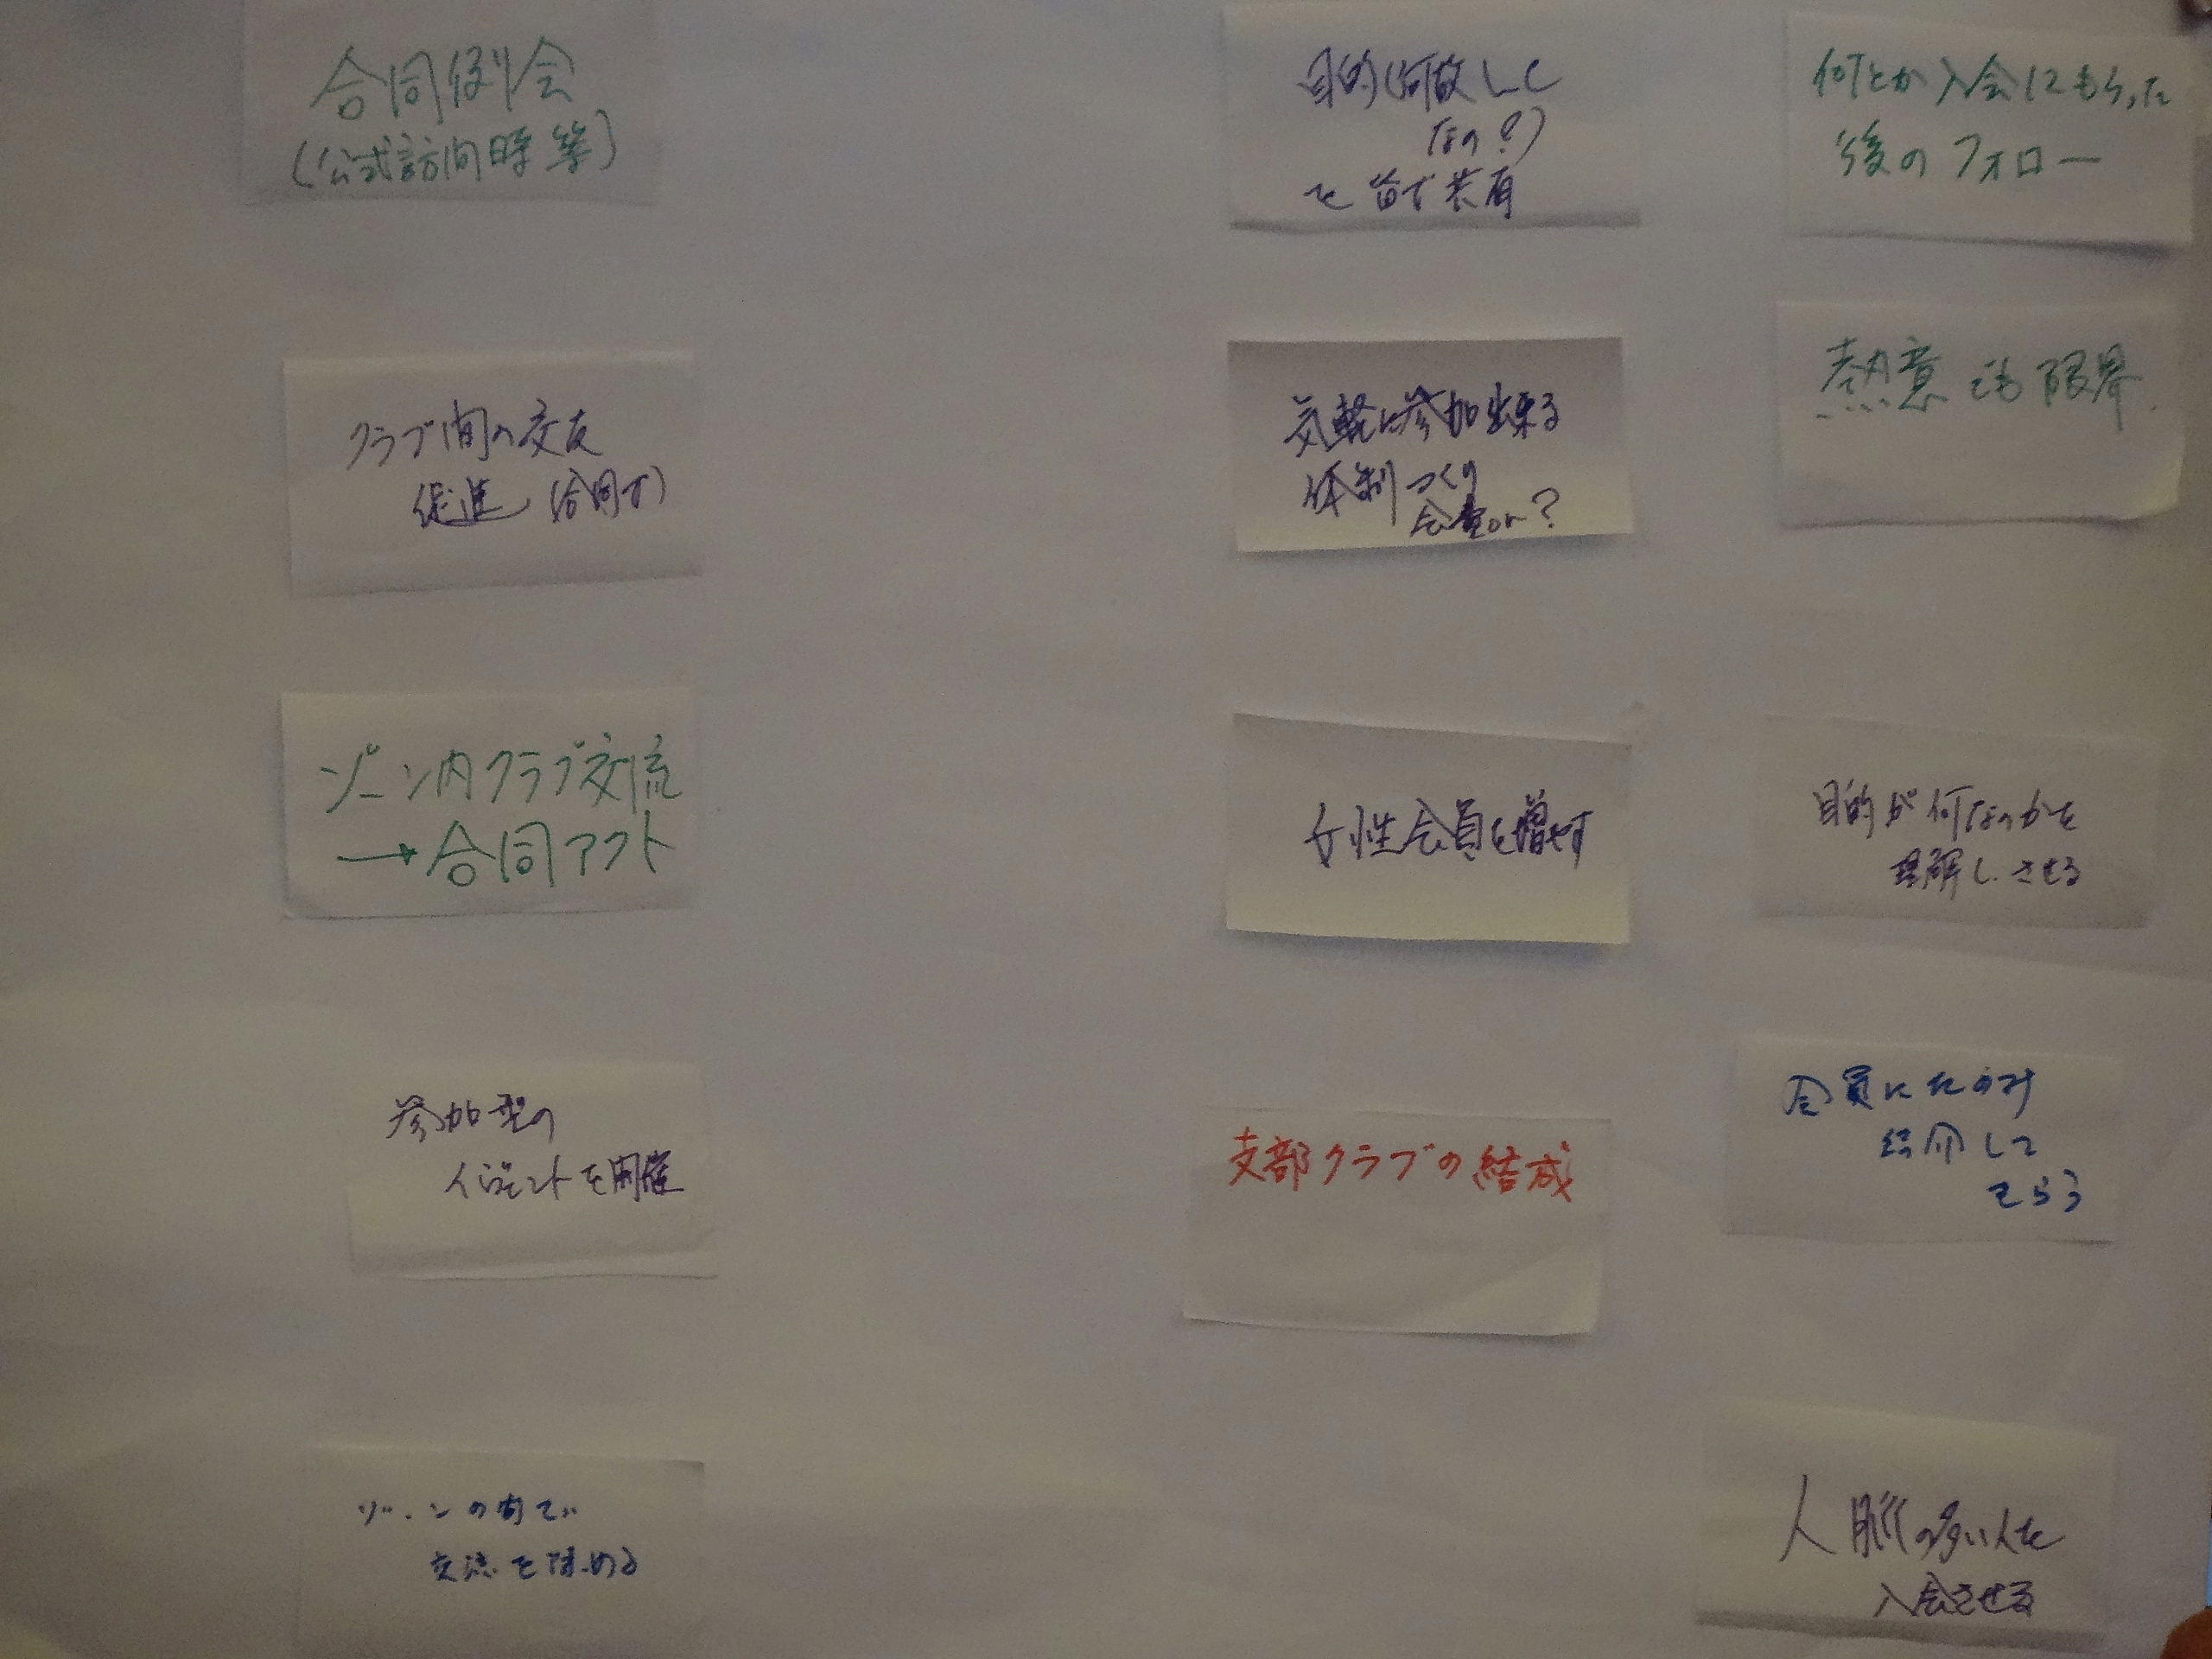 合同例会
(公式訪問時等)
クラブ間の交友
促進 (合同で)
ゾーン内クラブ交流
→合同アクト
参加型の
イベントを開催
ゾーンの中で
交流を深める
目的(何故して
なの?)
を皆で共有
気軽に参加出来る
体制つくり
会費or?
女性会員を増やす
支部クラブの結成
何とか入会にもらった
後のフォロー
熱意でも限界
目的が何なのかを
理解しさせる
会員にたのみ
紹介して
もらう
人脈の多い人を
入会させる